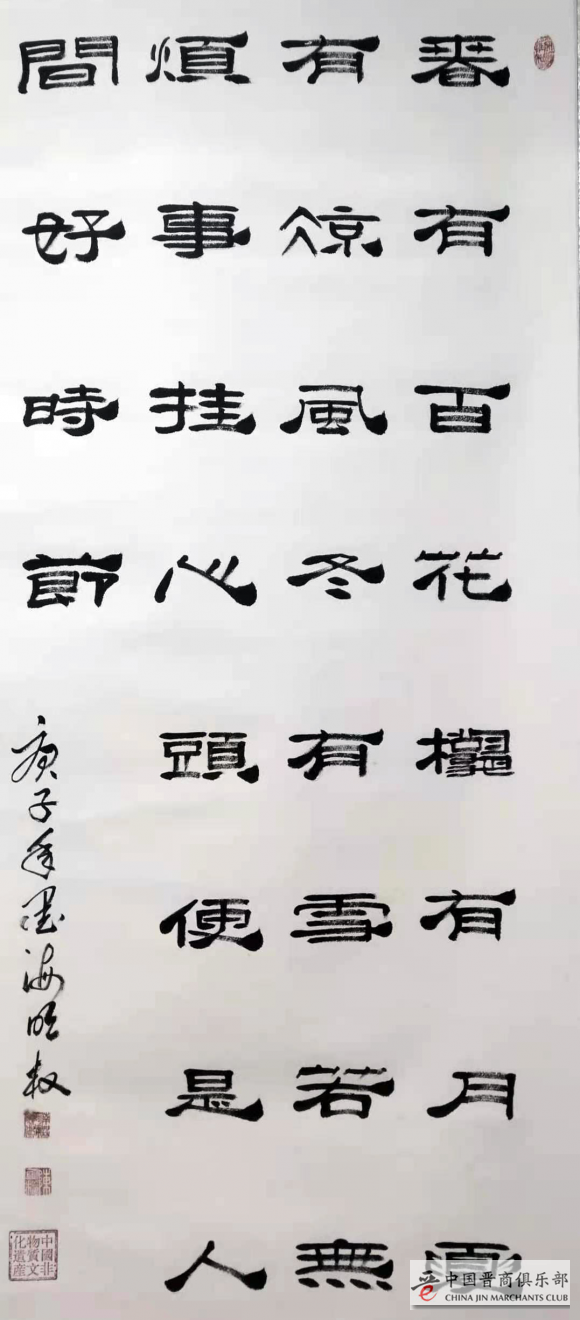 春有百花龝有月夏
有凉風冬有雪若無
煩事挂心頭便是人
間好時節
庚子年墨海
中國非
物質文
化遺産
中国晋商俱乐部
CHINA JIN MARCHANTS CLUB